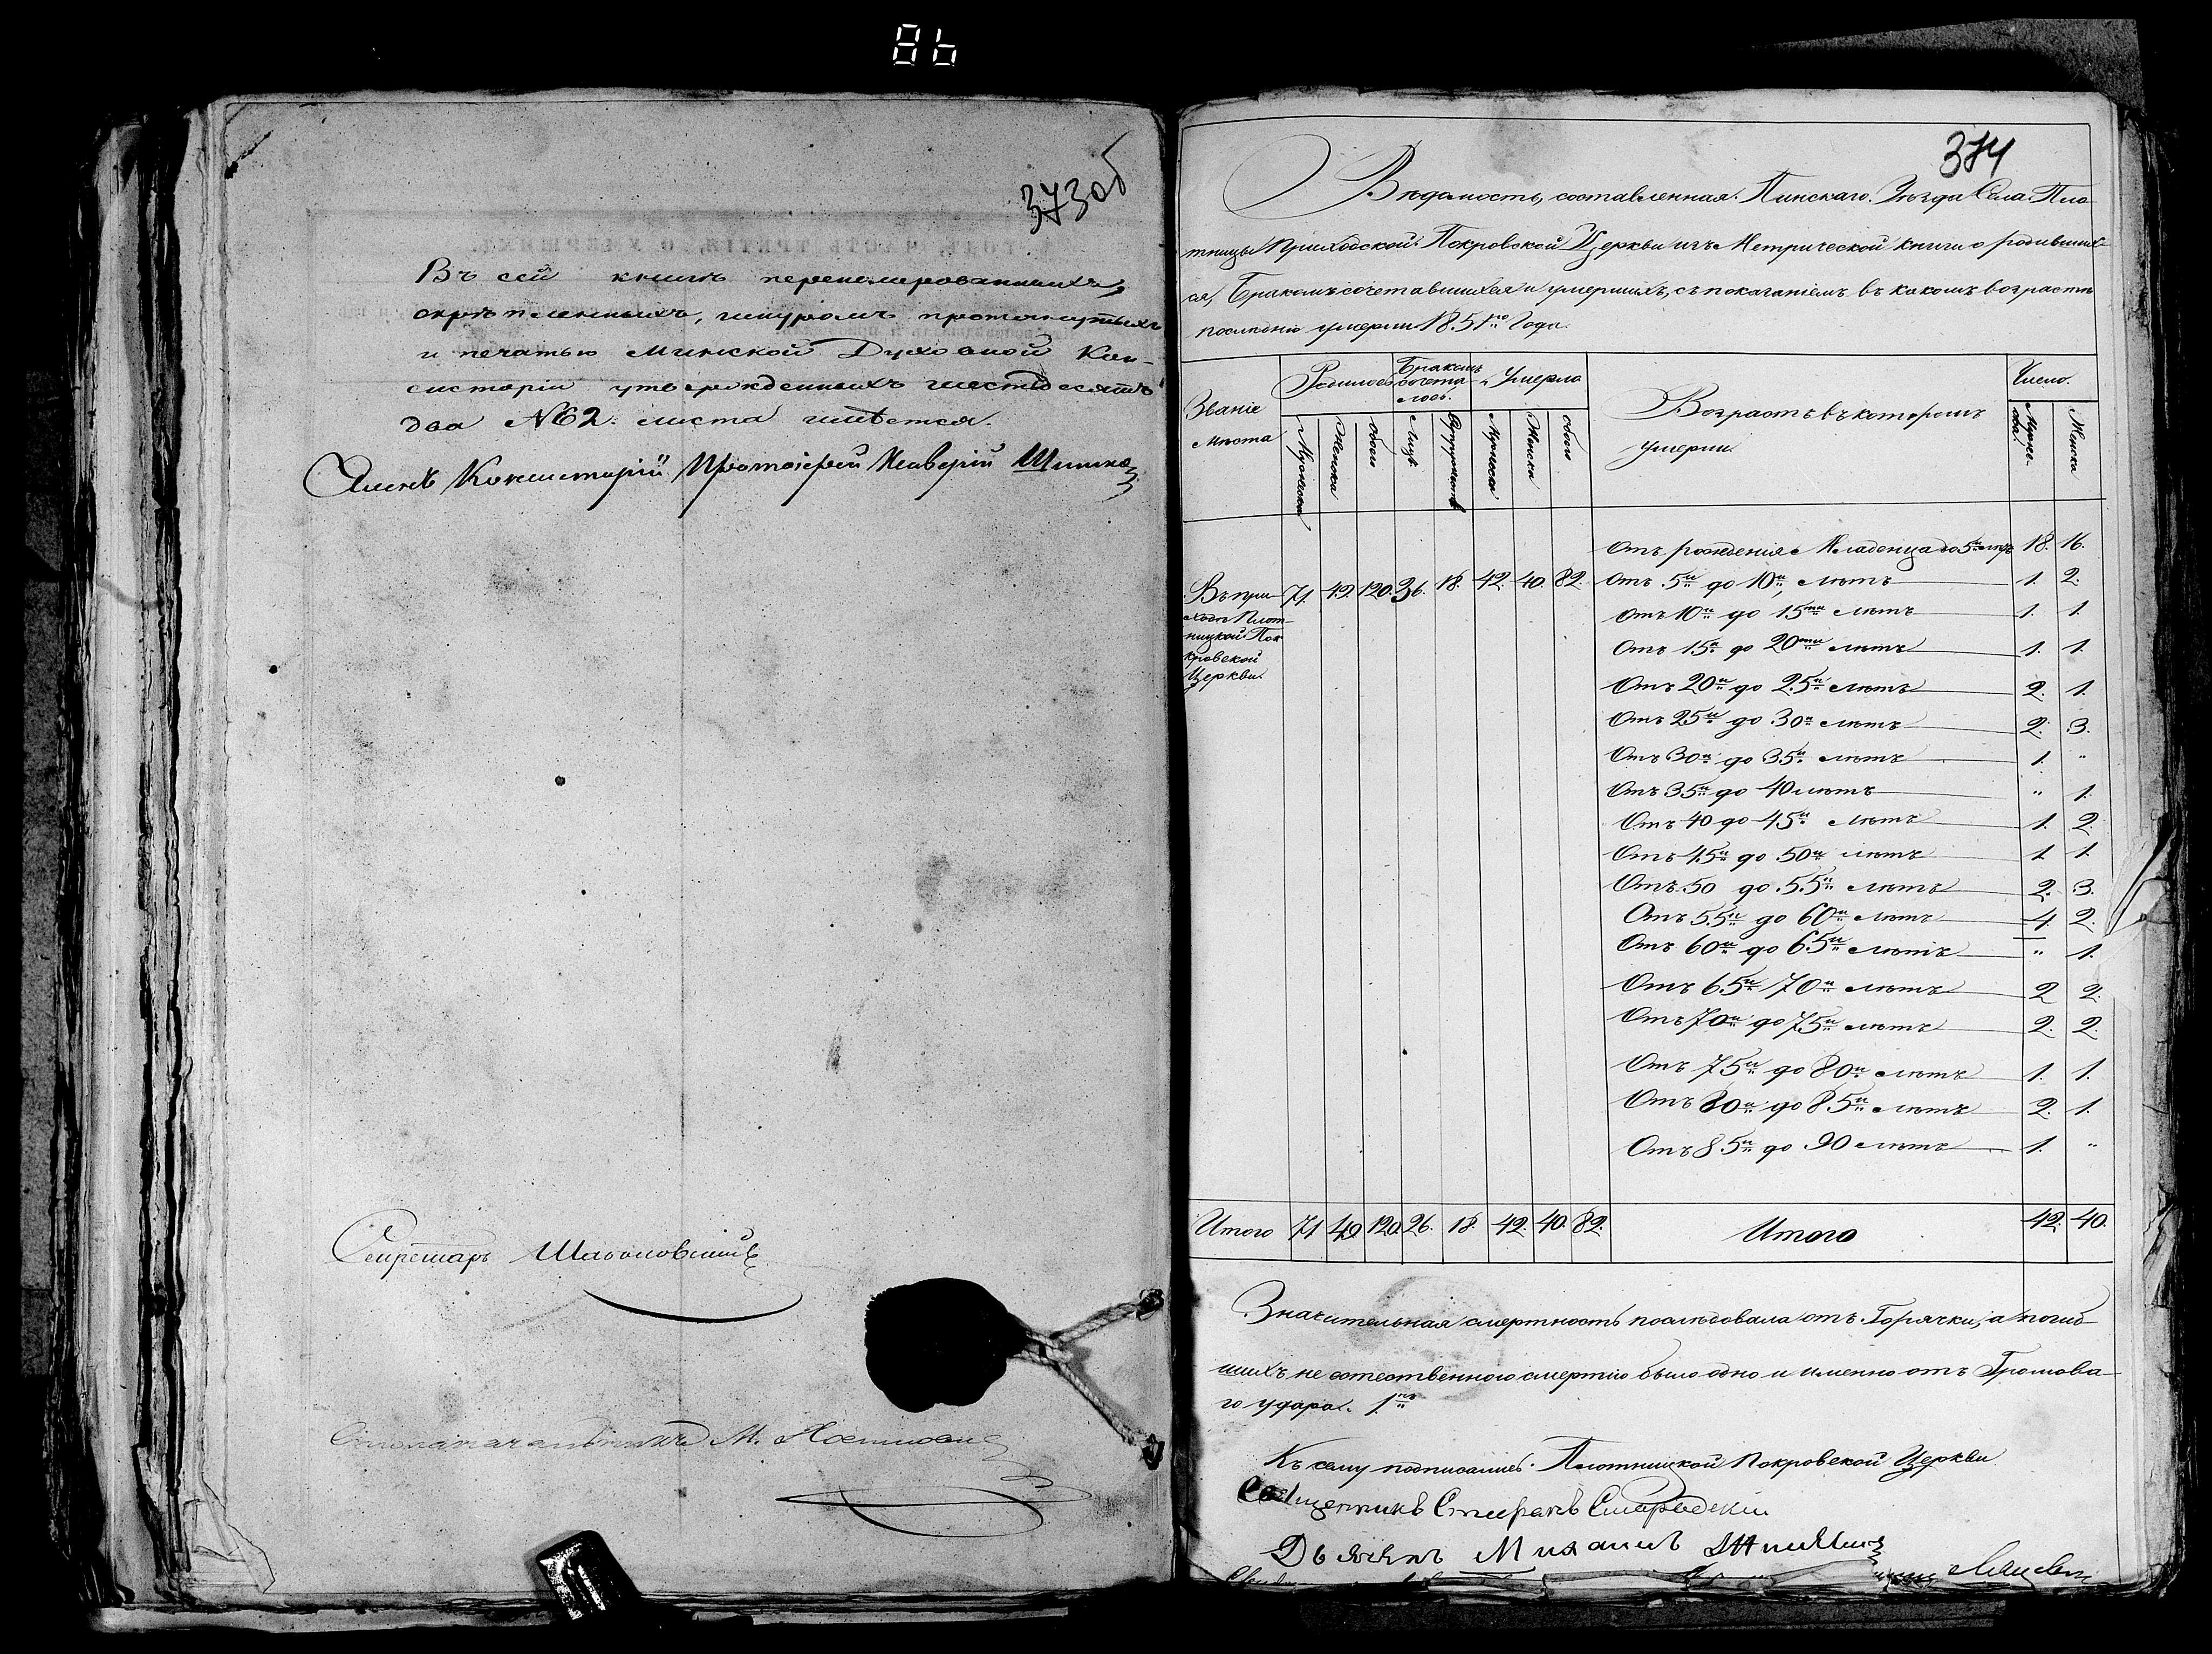 86
373об
Въ сей книгѣ перенумерованныхъ,
скрѣпленныхъ, шнуромъ протянутыхъ
и печатью Минской Духовной Кон-
систоріи утвержденныхъ шестьдесятъ
два №62. листа имѣется.
Членъ Консисторіи Протоіерей
Секретарь
Столоначальникъ М.
374
Вѣдомость, составленная Пинскаго Уѣзда Села Пло-
тницы Приходской Покровской Церкви изъ Метрической книги о родивших-
ся, Бракомъ сочетавшихся и умершихъ, съ показаніемъ въ какомъ возрастѣ
послѣдніе умерли 1851го Года.
Званіе мѣста
Родилось
Бракомъ сочета-лось.
Умерло
Возрастъ въ которомъ умерли.
Число.
Мужеска
Женска
обоего
Лицъ
Супружествъ
Мужеска
Женска
обоего
Мужес-ка.
Женска
Въ при-ходѣ Плот-ницкой Пок-ровской Церкви. 71. 49. 120. 36. 18. 42. 40. 82.
Отъ рожденія Младенца до 5и лѣтъ 18. 16.
Отъ 5и до 10и лѣтъ 1. 2.
Отъ 10и до 15ти лѣтъ 1. 1.
Отъ 15и до 20ти лѣтъ 1. 1.
Отъ 20и до 25и лѣтъ 2. 1.
Отъ 25и до 30и лѣтъ 2. 3.
Отъ 30и до 35и лѣтъ 1. "
Отъ 35и до 40 лѣтъ " 1.
Отъ 40 до 45и лѣтъ 1. 2.
Отъ 45и до 50и лѣтъ 1 1.
Отъ 50 до 55и лѣтъ 2. 3.
Отъ 55и до 60и лѣтъ 4. 2.
Отъ 60и до 65и лѣтъ " 1.
Отъ 65и 70и лѣтъ 2 2.
Отъ 70и до 75и лѣтъ 2. 2.
Отъ 75и до 80и лѣтъ 1. 1.
Отъ 80и до 85и лѣтъ 2. 1.
Отъ 85и до 90 лѣтъ 1. "
Итого 71 49 120. 26. 18. 42. 40. 82. Итого 42. 40.
Значительная смертность послѣдовала отъ Горячки, а погиб-
шихъ не естественною смертію было одно и именно отъ Громова-
го удара. 1.
Къ сему подписались Плотницкой Покровской Церкви
Священникъ
Дьячекъ Михаилъ